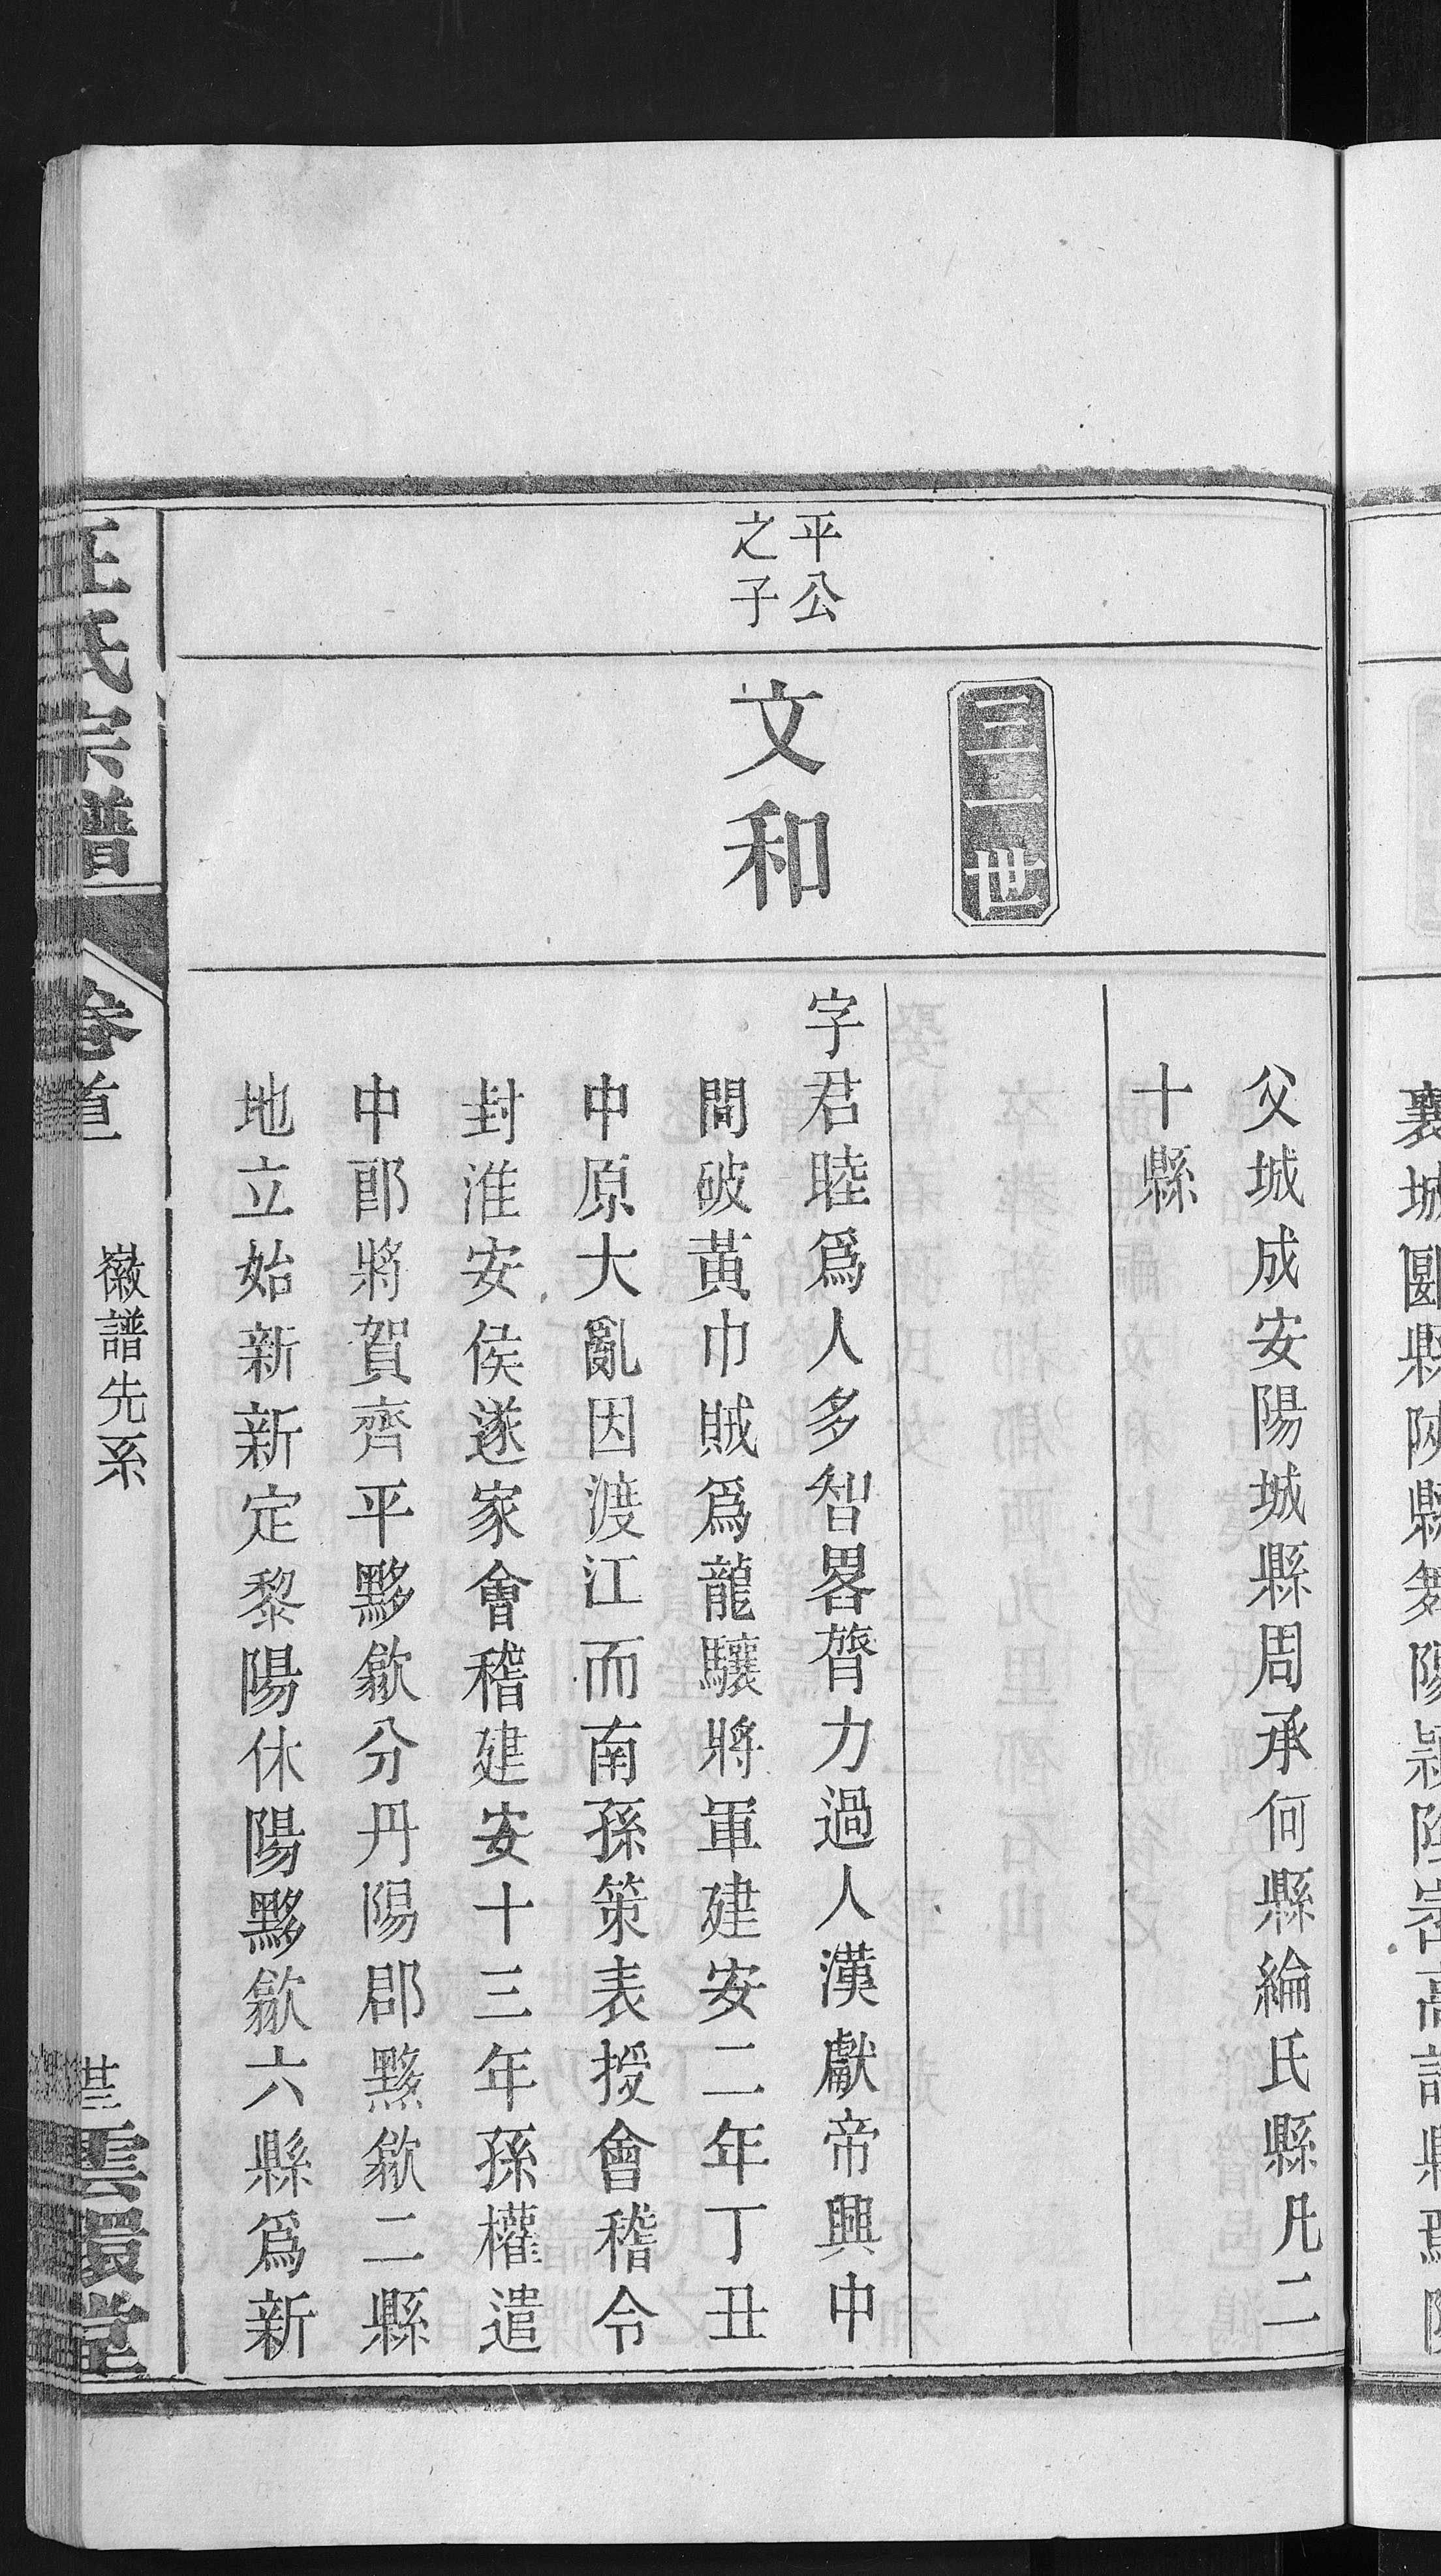 父城成安陽城縣周承何縣綸氏縣凡二
十縣
三一世
平公
之子
文和
字君睦爲人多智畧膂力過人漢獻帝興中
間破黃巾賊爲龍驤將軍建安二年丁丑
中原大亂因渡江而南孫策表授會稽令
封淮安侯遂家會稽建安十三年孫權遣
中郎將賀齊平黟歙分丹陽郡黟歙二縣
地立始新新定黎陽休陽黟歙六縣爲新
汪氏宗譜
卷首
徽譜先系
雲環堂